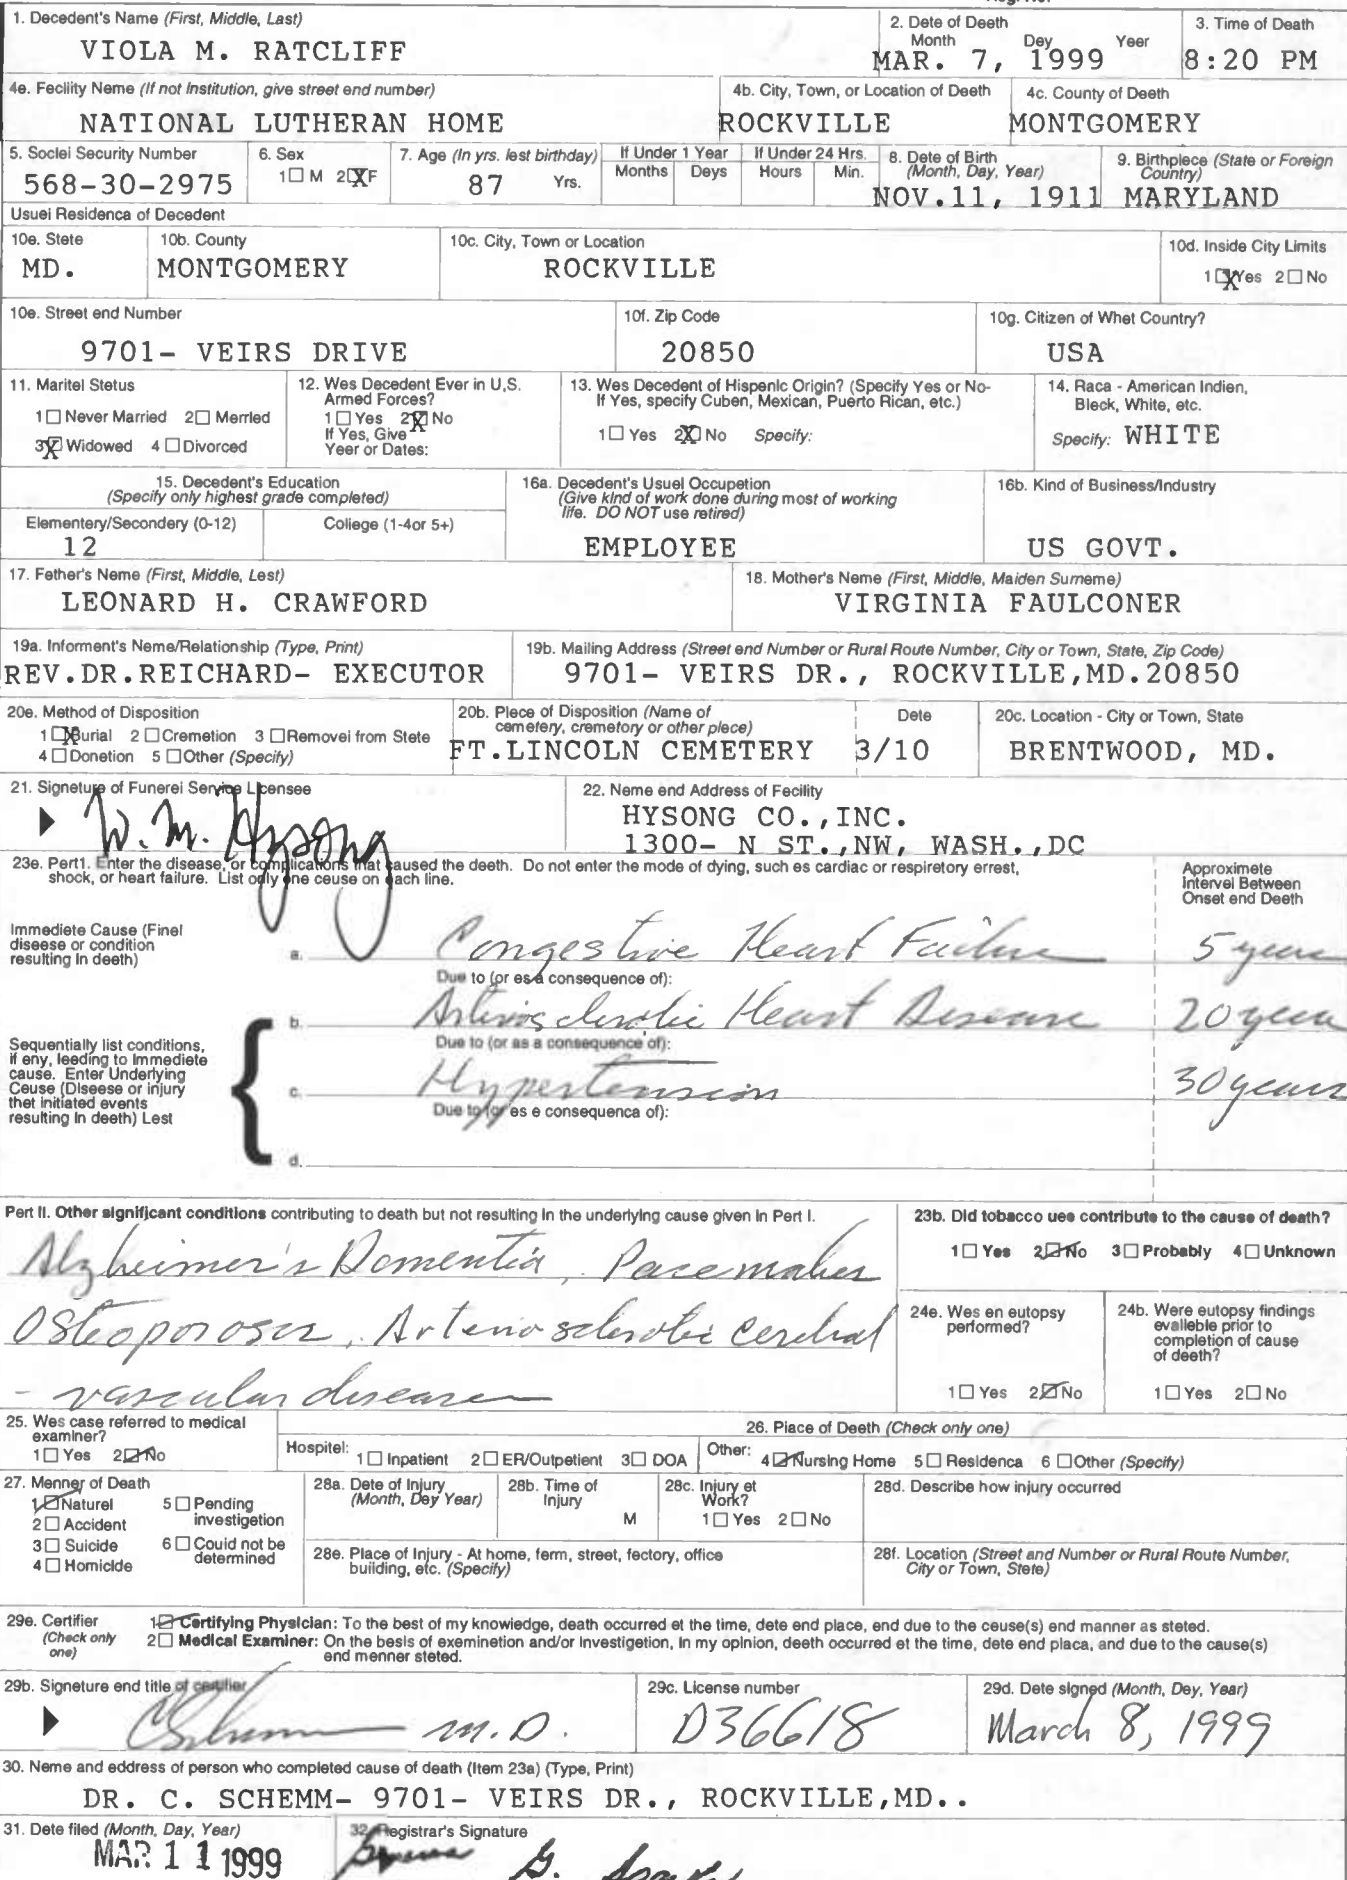 1. Decedent's Name (First, Middle, Last)
VIOLA M. RATCLIFF
2. Dete of Deeth
Month Dey Yeer
MAR. 7, 1999
3. Time of Death
8:20 PM
4e. Fecility Name (If not Institution, give street end number)
NATIONAL LUTHERAN HOME
4b. City, Town, or Location of Deeth
ROCKVILLE
4c. County of Deeth
MONTGOMERY
5. Sociei Security Number
568-30-2975
6. Sex
1☐ M 2☒ F
7. Age (In yrs. lest birthday)
87 Yrs.
If Under 1 Year
Months Deys
If Under 24 Hrs.
Hours Min.
8. Dete of Birth
(Month, Day, Year)
NOV.11, 1911
9. Birthplece (State or Foreign
Country)
MARYLAND
Usuei Residenca of Decedent
10e. Stete
MD.
10b. County
MONTGOMERY
10c. City, Town or Location
ROCKVILLE
10d. Inside City Limits
1☒ Yes 2☐ No
10e. Street end Number
9701- VEIRS DRIVE
10f. Zip Code
20850
10g. Citizen of Whet Country?
USA
11. Maritel Stetus
1☐ Never Married 2☐ Merrled
3☒ Widowed 4☐ Divorced
12. Wes Decedent Ever in U,S.
Armed Forces?
1☐ Yes 2☒ No
If Yes, Give
Yeer or Dates:
13. Wes Decedent of Hispenic Origin? (Specify Yes or No-
If Yes, specify Cuben, Mexican, Puerto Rican, etc.)
1☐ Yes 2☒ No Specify:
14. Raca - American Indien,
Bleck, White, etc.
Specify: WHITE
15. Decedent's Education
(Specify only highest grade completed)
Elementery/Secondery (0-12)
12
College (1-4or 5+)
16a. Decedent's Usuel Occupetion
(Give kind of work done during most of working
life. DO NOT use retired)
EMPLOYEE
16b. Kind of Business/Industry
US GOVT.
17. Fether's Name (First, Middle, Lest)
LEONARD H. CRAWFORD
18. Mother's Name (First, Middle, Maiden Surneme)
VIRGINIA FAULCONER
19a. Informent's Neme/Relationship (Type, Print)
REV.DR.REICHARD- EXECUTOR
19b. Mailing Address (Street end Number or Rural Route Number, City or Town, State, Zip Code)
9701- VEIRS DR., ROCKVILLE,MD.20850
20e. Method of Disposition
1☒ Burial 2☐ Cremetion 3☐ Removei from Stete
4☐ Donetion 5☐ Other (Specify)
20b. Plece of Disposition (Name of
cemetery, cremetory or other plece)
FT.LINCOLN CEMETERY
Dete
3/10
20c. Location - City or Town, State
BRENTWOOD, MD.
21. Signeture of Funerei Service Licensee
W. M. Hysong
22. Neme end Address of Fecility
HYSONG CO.,INC.
1300- N ST.,NW, WASH.,DC
23e. Pert1. Enter the disease, or complications that caused the deeth. Do not enter the mode of dying, such es cardiac or respiretory errest,
shock, or heart failure. List only one ceuse on each line.
Approximete
Intervel Between
Onset end Deeth
Immediete Cause (Finel
diseese or condition
resulting In death)
a. Congestive Heart Failure 5 years
Due to (or es a consequence of):
b. Arteriosclerotic Heart Disease 20 years
Due to (or as a consequence of):
Sequentially list conditions,
if eny, leeding to Immediete
cause. Enter Underlying
Ceuse (Diseese or injury
thet initiated events
resulting In death) Lest
c. Hypertension 30 years
Due to (or es e consequenca of):
d.
Pert II. Other significant conditions contributing to death but not resulting in the underlying cause given in Pert I.
Alzheimer's Dementia, Pacemaker
Osteoporosis, Arteriosclerotic cerebral
- vascular disease
23b. Did tobacco uee contribute to the cause of death?
1☐ Yes 2☑ No 3☐ Probably 4☐ Unknown
24e. Wes en eutopsy
performed?
1☐ Yes 2☑ No
24b. Were eutopsy findings
evelleble prior to
completion of cause
of death?
1☐ Yes 2☐ No
25. Wes case referred to medical
examiner?
1☐ Yes 2☑ No
26. Place of Deeth (Check only one)
Hospitel: 1☐ Inpatient 2☐ ER/Outpetient 3☐ DOA
Other: 4☑ Nursing Home 5☐ Residenca 6☐ Other (Specify)
27. Menner of Death
1☑ Naturel 5☐ Pending
investigetion
2☐ Accident
3☐ Suicide 6☐ Could not be
determined
4☐ Homicide
28a. Dete of Injury
(Month, Dey Year)
28b. Time of
Injury
M
28c. Injury et
Work?
1☐ Yes 2☐ No
28d. Describe how injury occurred
28e. Place of Injury - At home, ferm, street, fectory, office
building, etc. (Specify)
28f. Location (Street and Number or Rural Route Number,
City or Town, Stete)
29e. Certifier
(Check only
one)
1☑ Certifying Physician: To the best of my knowledge, death occurred et the time, dete end place, end due to the ceuse(s) end manner as steted.
2☐ Medical Examiner: On the besis of exeminetion and/or Investigetion, In my opinion, deeth occurred et the time, dete end placa, and due to the cause(s)
end menner steted.
29b. Signeture end title of certifier
CSchemm M.D.
29c. License number
D36618
29d. Dete signed (Month, Dey, Year)
March 8, 1999
30. Neme and eddress of person who completed cause of death (Item 23a) (Type, Print)
DR. C. SCHEMM- 9701- VEIRS DR., ROCKVILLE,MD..
31. Dete filed (Month, Day, Year)
MAR 11 1999
32. Registrar's Signature
G.